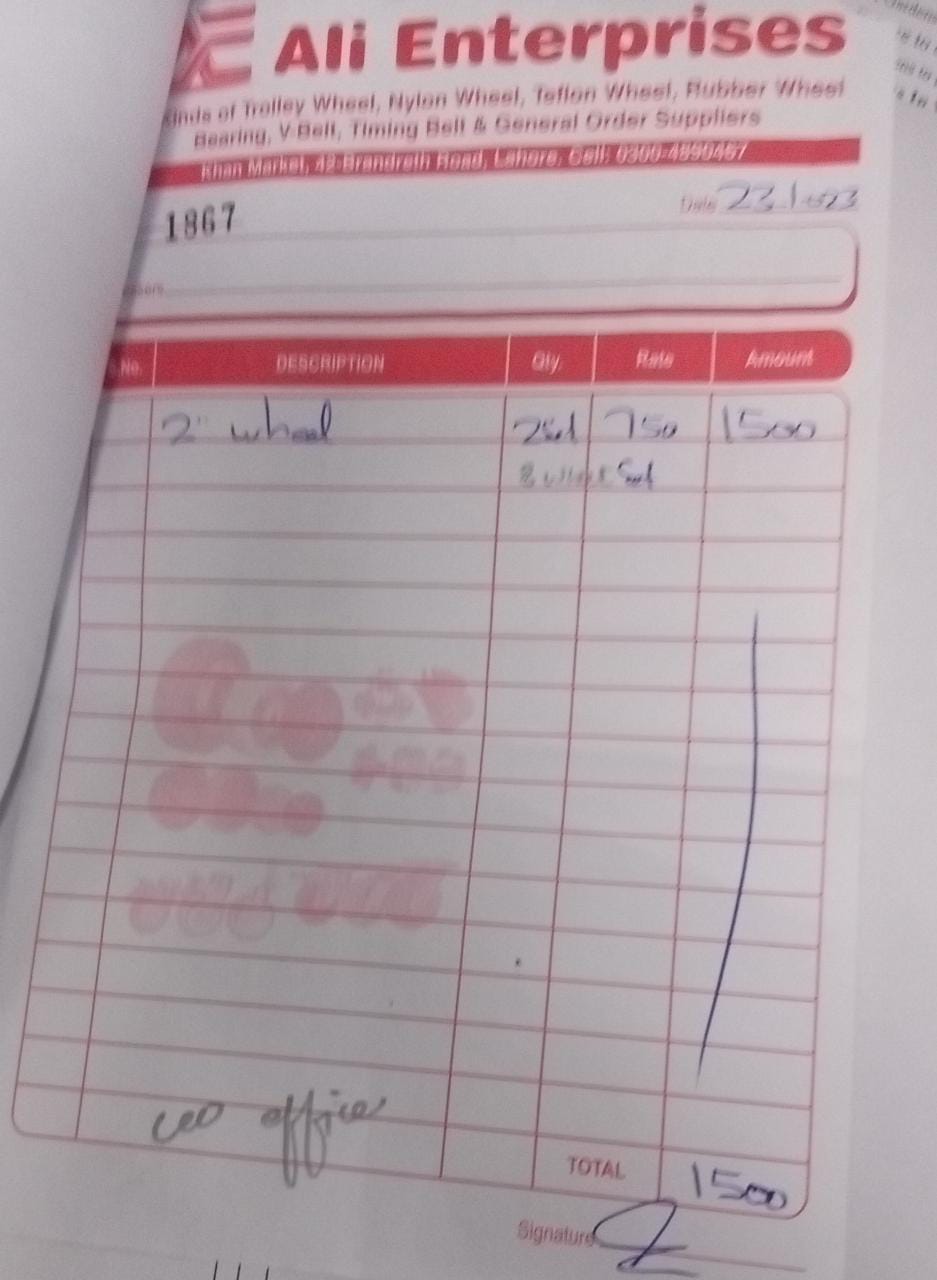 Ali Enterprises
Kinds of Trolley Wheel, Nylon Wheel, Teflon Wheel, Rubber Wheel
Bearing, V-Belt, Timing Belt & General Order Suppliers
Khan Market, 42-Brandreth Road, Lahore. Cell: 0300-4890467
1867 Date
No. DESCRIPTION Qty. Rate Amount
2" wheel 2 Set 750 1500
Set
CEO office
TOTAL 1500
Signature